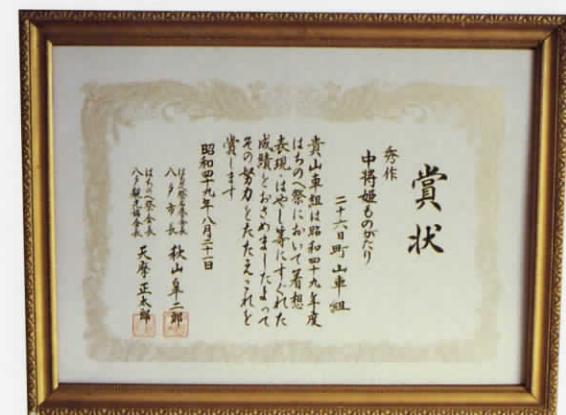 賞状
秀作
中将姫ものがたり
二十六日町山車組
貴山車組は昭和四十九年度
はちのへ祭において着想
表現はやし等にすぐれた
成績をおさめましたよって
その努力をたたえこれを
賞します
昭和四十九年八月二十一日
八戸市長 秋山皐二郎
はちのへ祭会長
八戸観光協会長 天摩正太郎